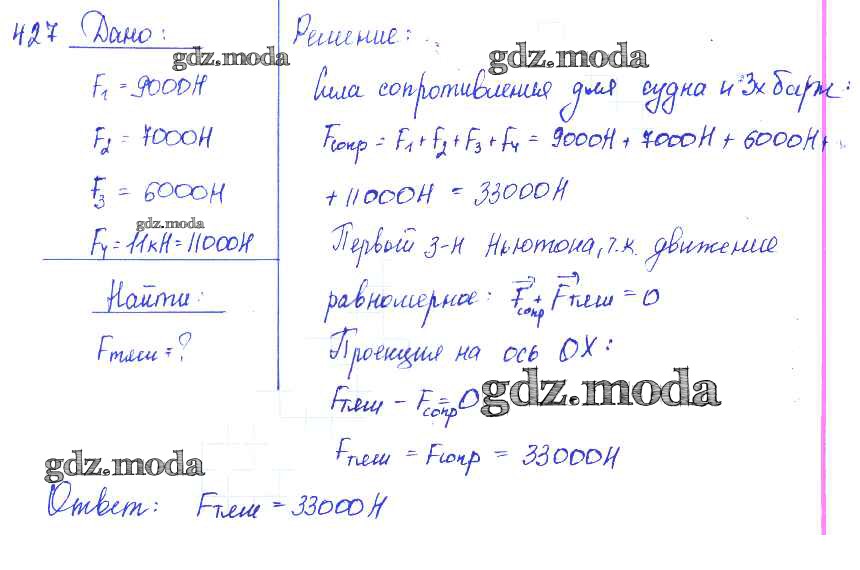 427 Дано:
gdz.moda
F₁ = 9000Н
F₂ = 7000Н
F₃ = 6000Н
gdz.moda
F₄ = 11кН = 11000Н
Найти:
Fтяги = ?
Решение:
gdz.moda
Сила сопротивления для судна и 3х барж:
Fсопр = F₁ + F₂ + F₃ + F₄ = 9000Н + 7000Н + 6000Н +
+ 11000Н = 33000Н
Первый з-н Ньютона, т.к. движение
равномерное: F⃗сопр + F⃗тяги = 0
Проекция на ось OX:
Fтяги - Fсопр = 0
gdz.moda
Fтяги = Fсопр = 33000Н
gdz.moda
Ответ: Fтяги = 33000Н